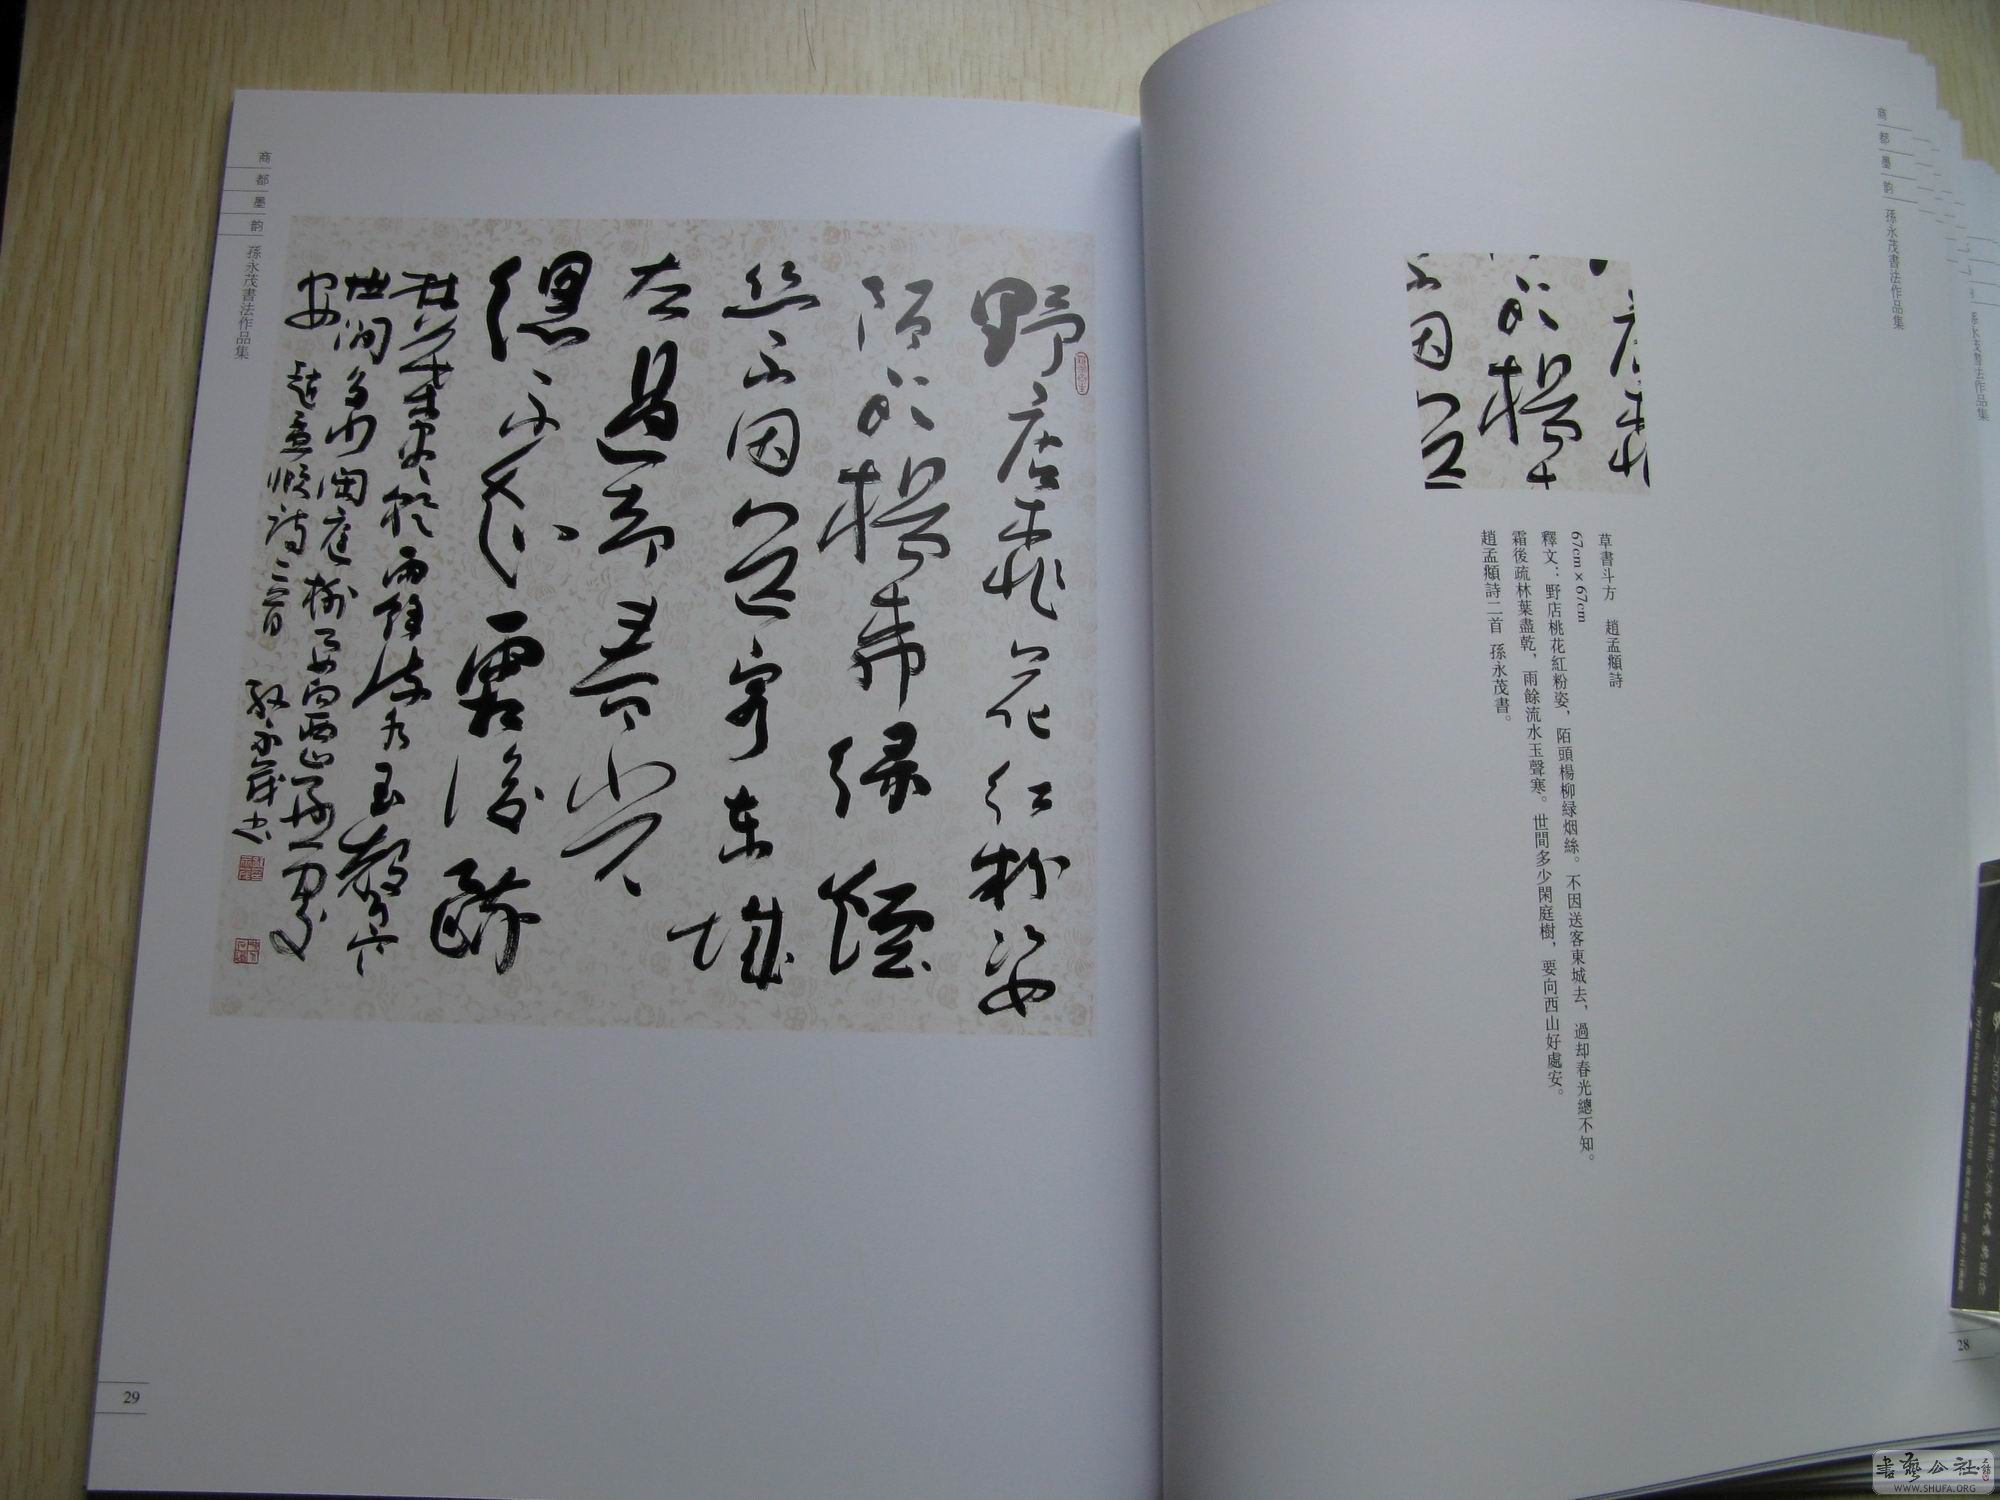 商都墨韵 孫永茂書法作品集
草書斗方 趙孟頫詩
67cm×67cm
釋文：野店桃花紅粉姿，陌頭楊柳緑烟絲。不因送客東城去，過却春光總不知。
霜後疏林葉盡乾，雨餘流水玉聲寒。世間多少閑庭樹，要向西山好處安。
趙孟頫詩二首 孫永茂書。
28
商都墨韵 孫永茂書法作品集
野店桃花红粉姿
陌頭楊柳绿煙
丝不因送客東城
去過却春光
總不知霜後疏
林葉盡乾雨餘流水玉聲寒
世間多少閑庭樹要向西山好處
安 趙孟頫詩二首 孫永茂书
29
書藝公社
WWW.SHUFA.ORG